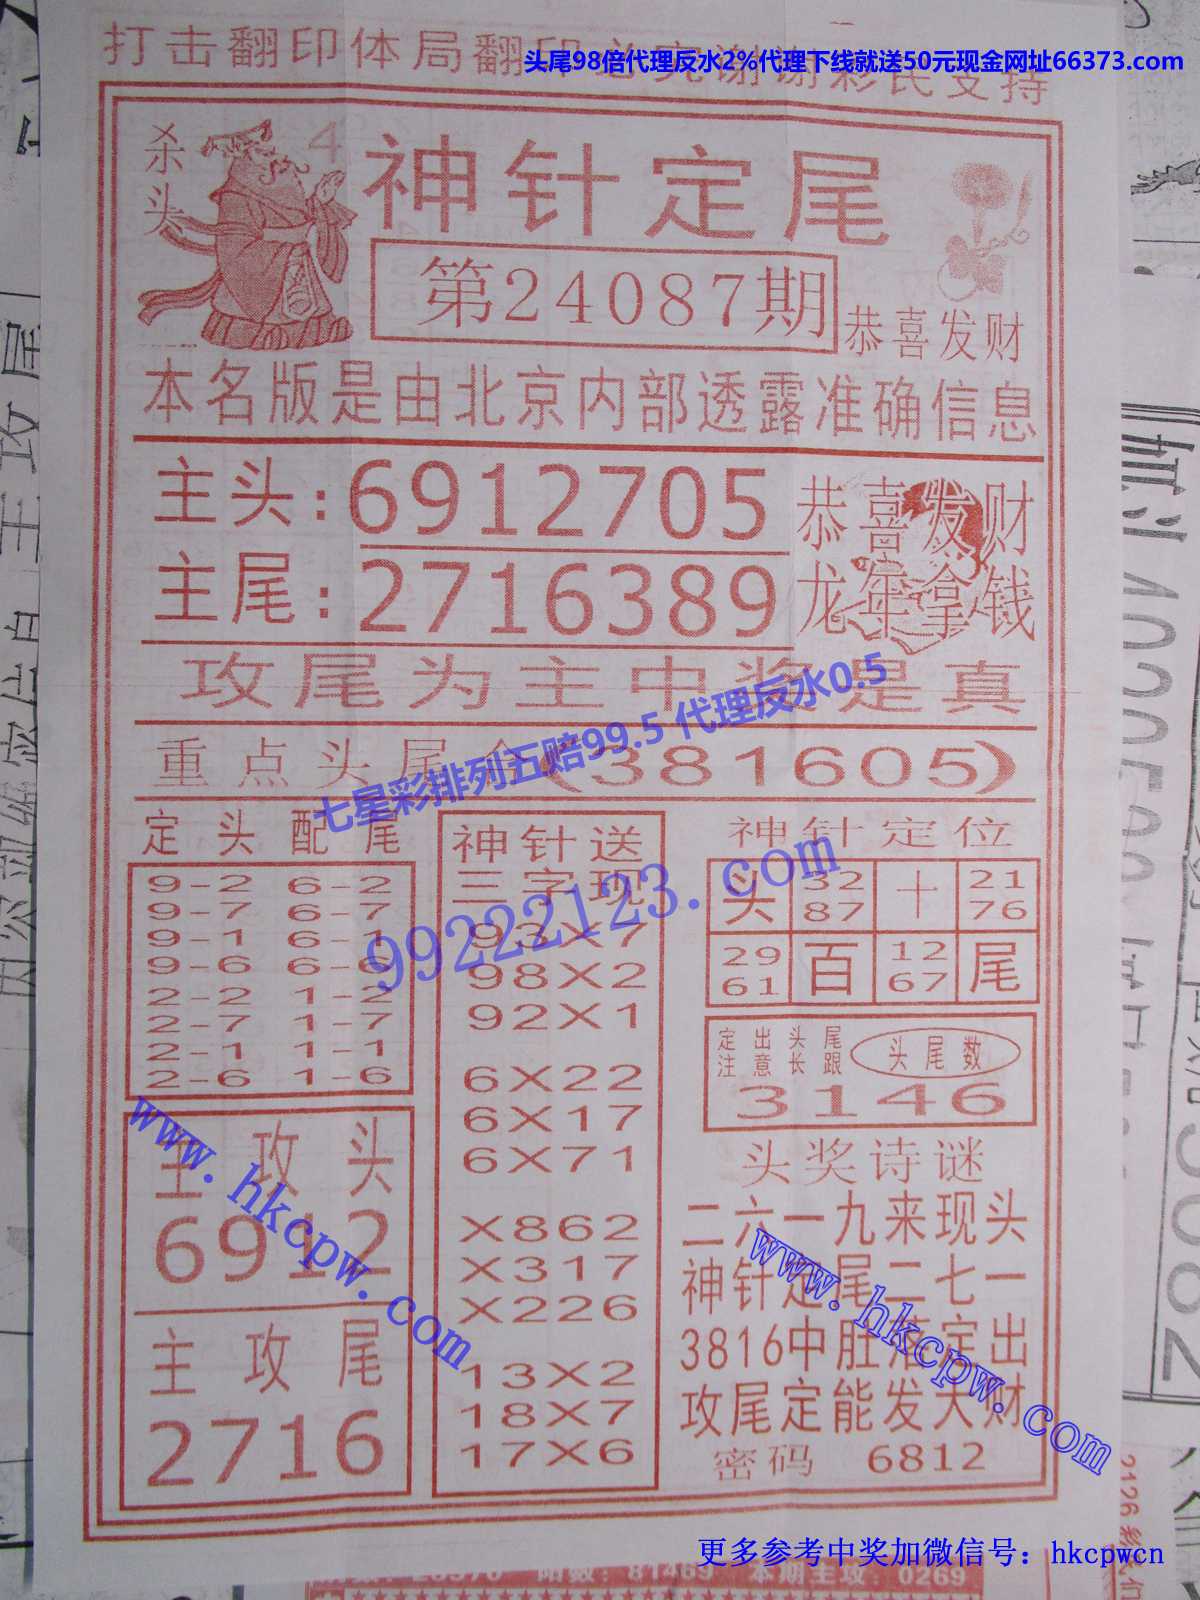 头尾98倍代理反水2%代理下线就送50元现金网址66373.com
打击翻印体局翻印必究谢谢彩民支持
杀头
4
神针定尾
第24087期
恭喜发财
本名版是由北京内部透露准确信息
主头:6912705
主尾:2716389
恭喜发财
龙年拿钱
攻尾为主中奖是真
重点头尾合(381605)
七星彩排列五赔99.5 代理反水0.5
99222123.com
定头配尾
9-2 6-2
9-7 6-7
9-1 6-1
9-6 6-6
2-2 1-2
2-7 1-7
2-1 1-1
2-6 1-6
主攻头
6912
主攻尾
2716
神针送
三字现
93X7
98X2
92X1
6X22
6X17
6X71
X862
X317
X226
13X2
18X7
17X6
神针定位
头 32 十 21
87 76
29 百 12 尾
61 67
定出头尾
注意长跟
头尾数
3146
头奖诗谜
二六一九来现头
神针定尾二七一
3816中肚落定出
攻尾定能发大财
密码 6812
www.hkcpw.com
www.hkcpw.com
更多参考中奖加微信号：hkcpwcn
阳数：81469 本期主攻：0269